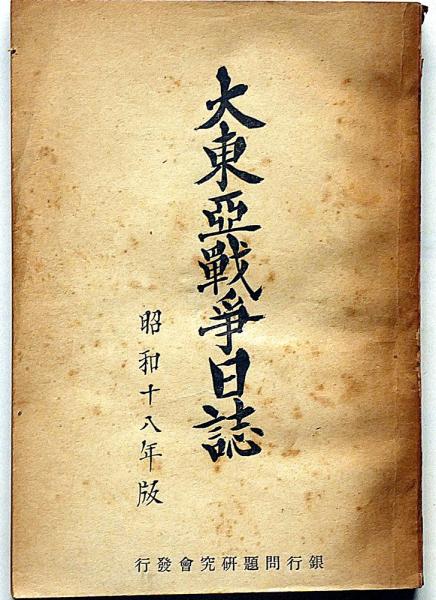 大東亞戰爭日誌
昭和十八年版
銀行問題研究會發行